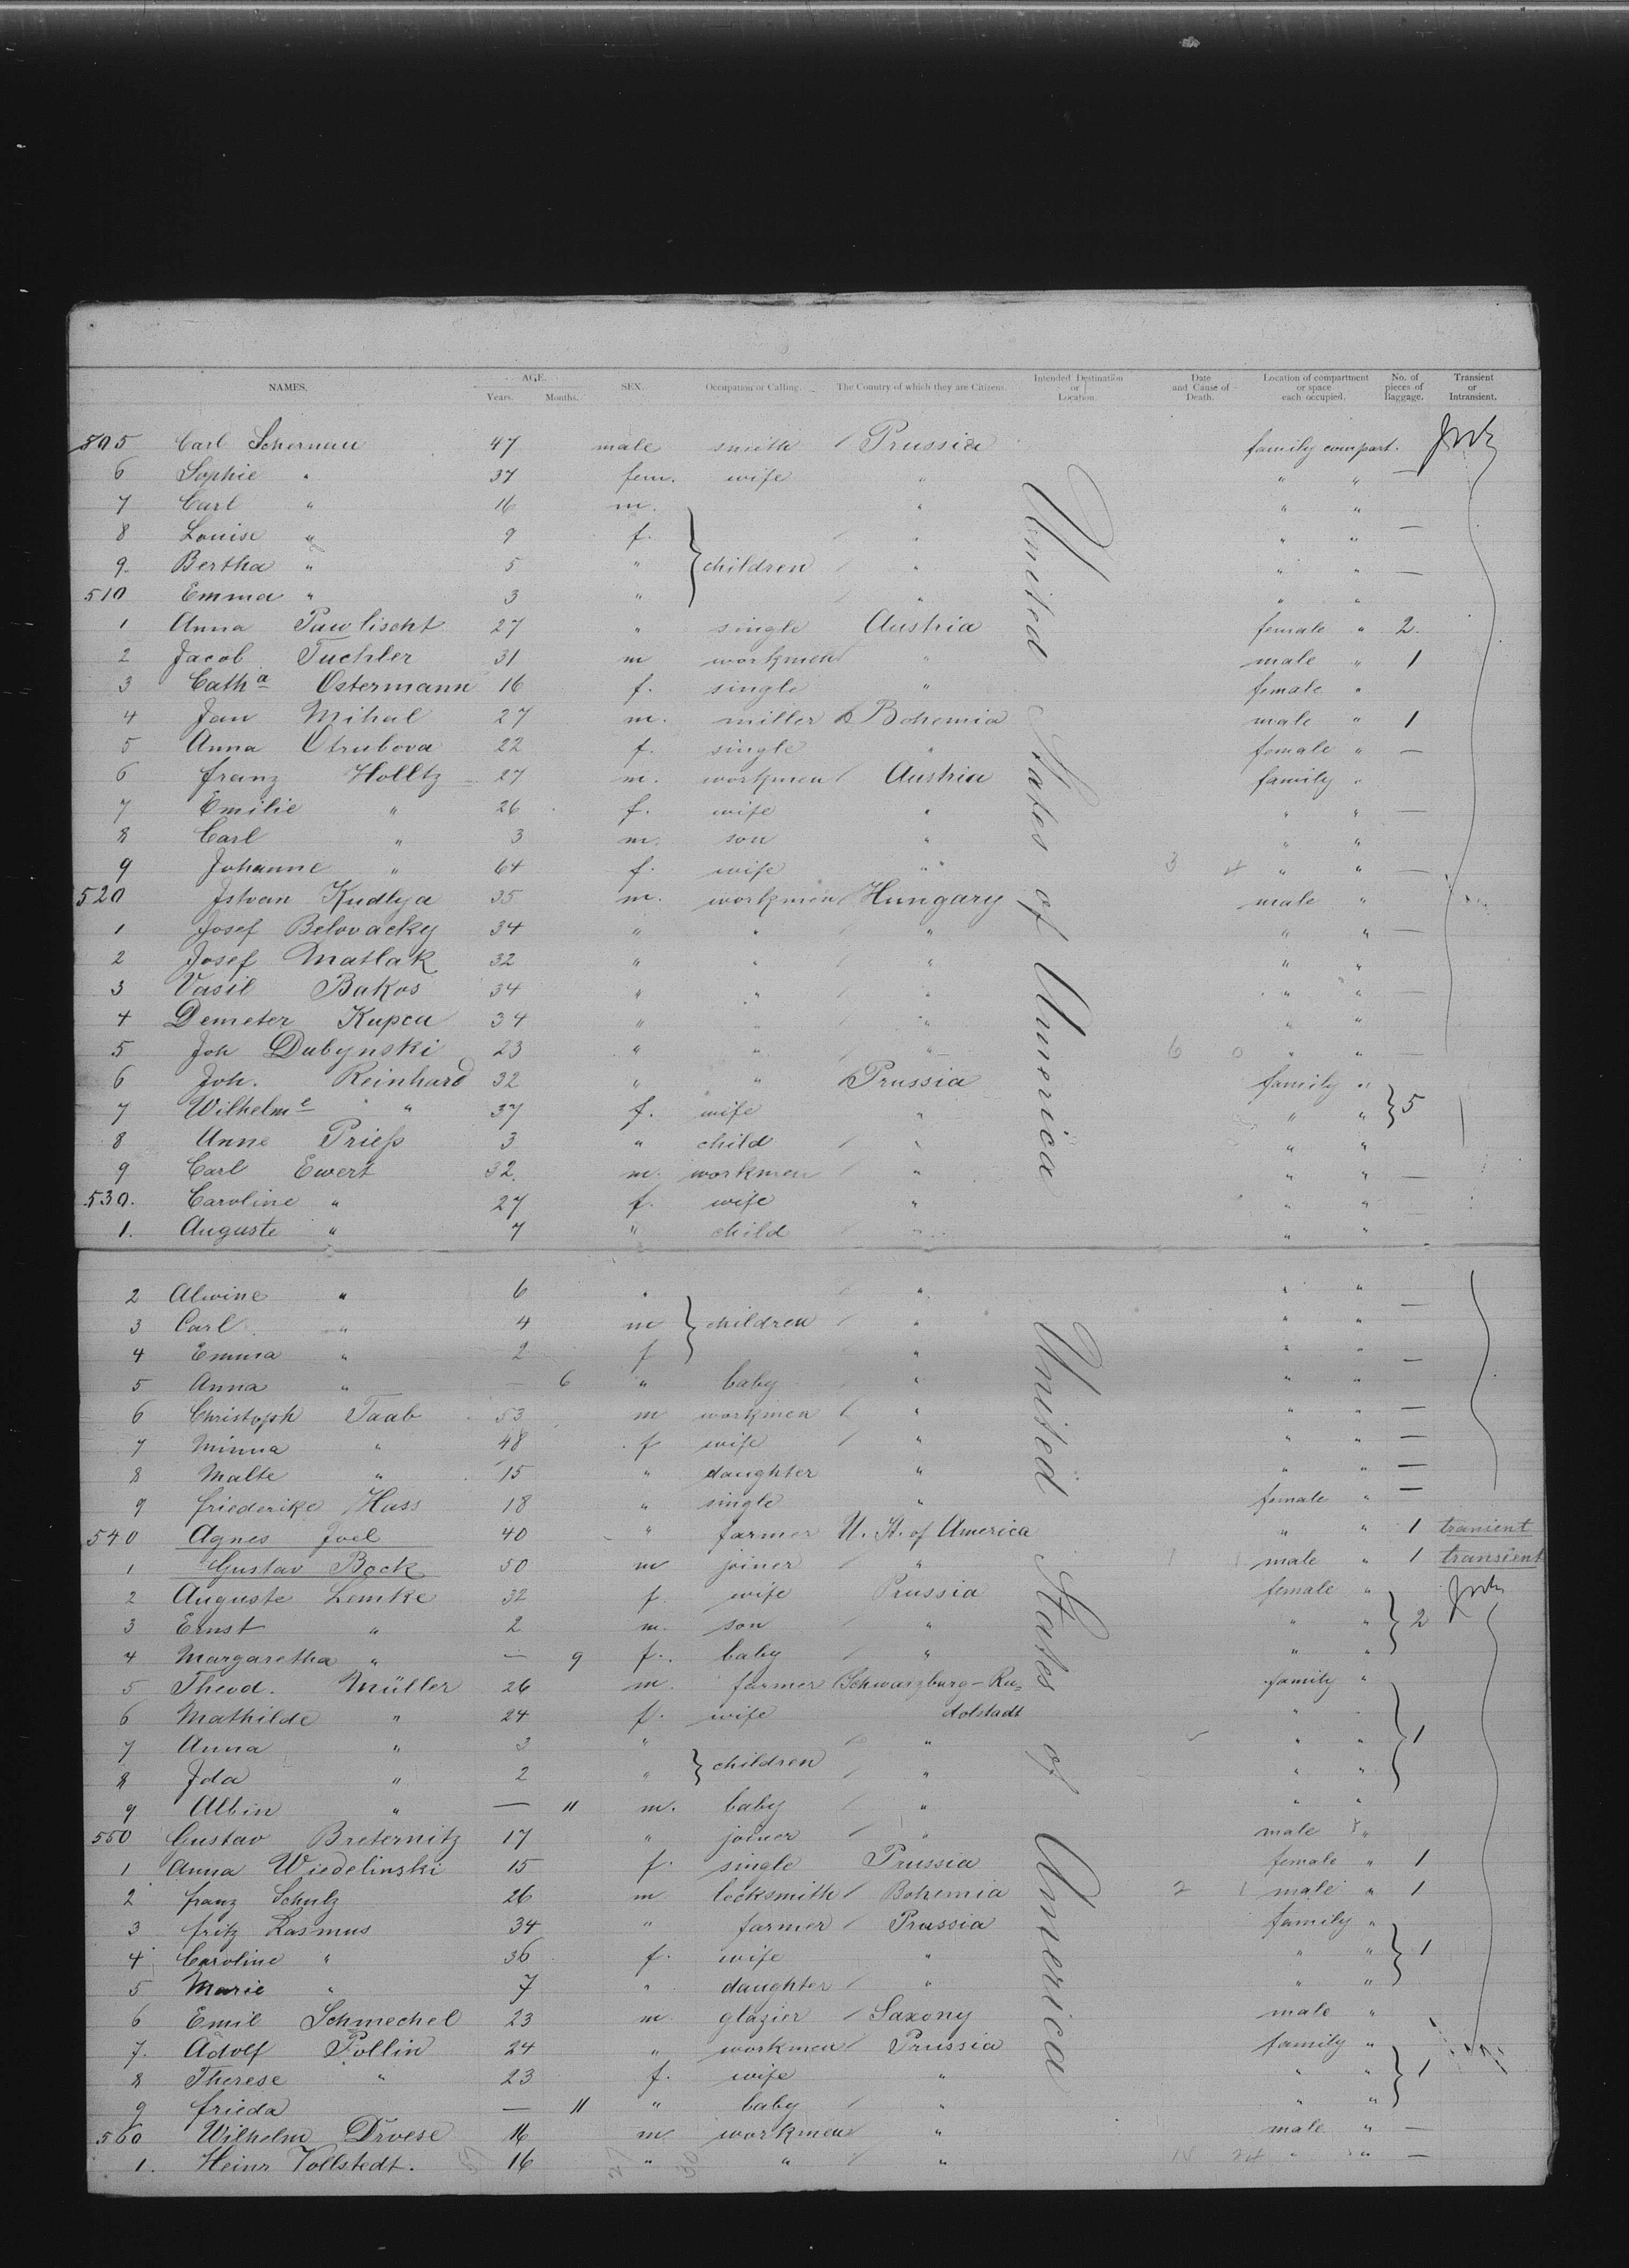 NAMES. AGE. Years. Months. SEX. Occupation or Calling. The Country of which they are Citizens. Intended Destination or Location. Date and Cause of Death. Location of compartment or space each occupied. No. of pieces of Baggage. Transient or Intransient.
505 Carl Schernau 47 male smith Prussia family compart.
6 Sophie " 37 fem. wife " " " —
7 Carl " 16 m. " " "
8 Louise " 9 f. " " " —
9. Bertha " 5 " children " " " —
510 Emma " 3 " " " "
1 Anna Pawlischt 27 " single Austria female " 2.
2 Jacob Tuchler 31 m workmen " male " 1
3 Catha Ostermann 16 f. single " female "
4 Jan Mihal 27 m. miller Bohemia male " 1
5 Anna Otrubova 22 f. single " female " —
6 Franz Holltz 27 m. workmen Austria family "
7 Emilie " 26 f. wife " " " —
8 Carl " 3 m. son " " "
9 Johanne " 64 f. wife " 3 4 " " —
520 Istvan Kudlya 35 m. workmen Hungary male "
1 Josef Belovacky 34 " " " " " —
2 Josef Matlak 32 " " " " "
3 Vasil Bakos 34 " " " " " —
4 Demeter Kupca 34 " " " " "
5 Joh Dubynski 23 " " " 6 0 " " —
6 Joh. Reinhard 32 " " Prussia family "
7 Wilhelme " 37 f. wife " " " 5
8 Anne Prieß 3 " child " " "
9 Carl Ewert 32. m. workmen " " " —
530. Caroline " 27 f. wife " " "
1. Auguste " 7 " child " " "
United States of America
2 Alwine " 6 " " " " —
3 Carl " 4 m children " " "
4 Emma " 2 f " " " —
5 Anna " — 6 " baby " " "
6 Christoph Taab 53 m workmen " " " —
7 Minna " 48 f wife " " " —
8 Malte " 15 " daughter " " " —
9 Friederike Hass 18 " single " female " —
540 Agnes Joel 40 " farmer U. St. of America " " 1 tranient
1 Gustav Bock 50 m joiner " 1 1 male " 1 transient
2 Auguste Lemke 32 f. wife Prussia female "
3 Ernst " 2 m. son " " " 2
4 Margaretha " — 9 f. baby " " "
5 Theod. Müller 26 m. farmer Schwarzburg-Ru= family "
6 Mathilde " 24 f. wife dolstadt " "
7 Anna " 3 " " " " 1
8 Ida " 2 " children " " "
9 Albin " — 11 m. baby " " "
550 Gustav Breternitz 17 " joiner " male "
1 Anna Wiedelinski 15 f. single Prussia female " 1
2 Franz Schulz 26 m locksmith Bohemia 2 1 male " 1
3 Fritz Rasmus 34 " farmer Prussia family "
4 Caroline " 36 f. wife " " " 1
5 Marie " 7 " daughter " " "
6 Emil Schmechel 23 m glazier Saxony male "
7. Adolf Pollin 24 " workmen Prussia family "
8 Therese " 23 f. wife " " " 1
9 Frieda — 11 " baby " " "
560 Wilhelm Droese 16 m workmen " male " —
1. Heinr Vollstedt. 16 " " " " " —
United States of America